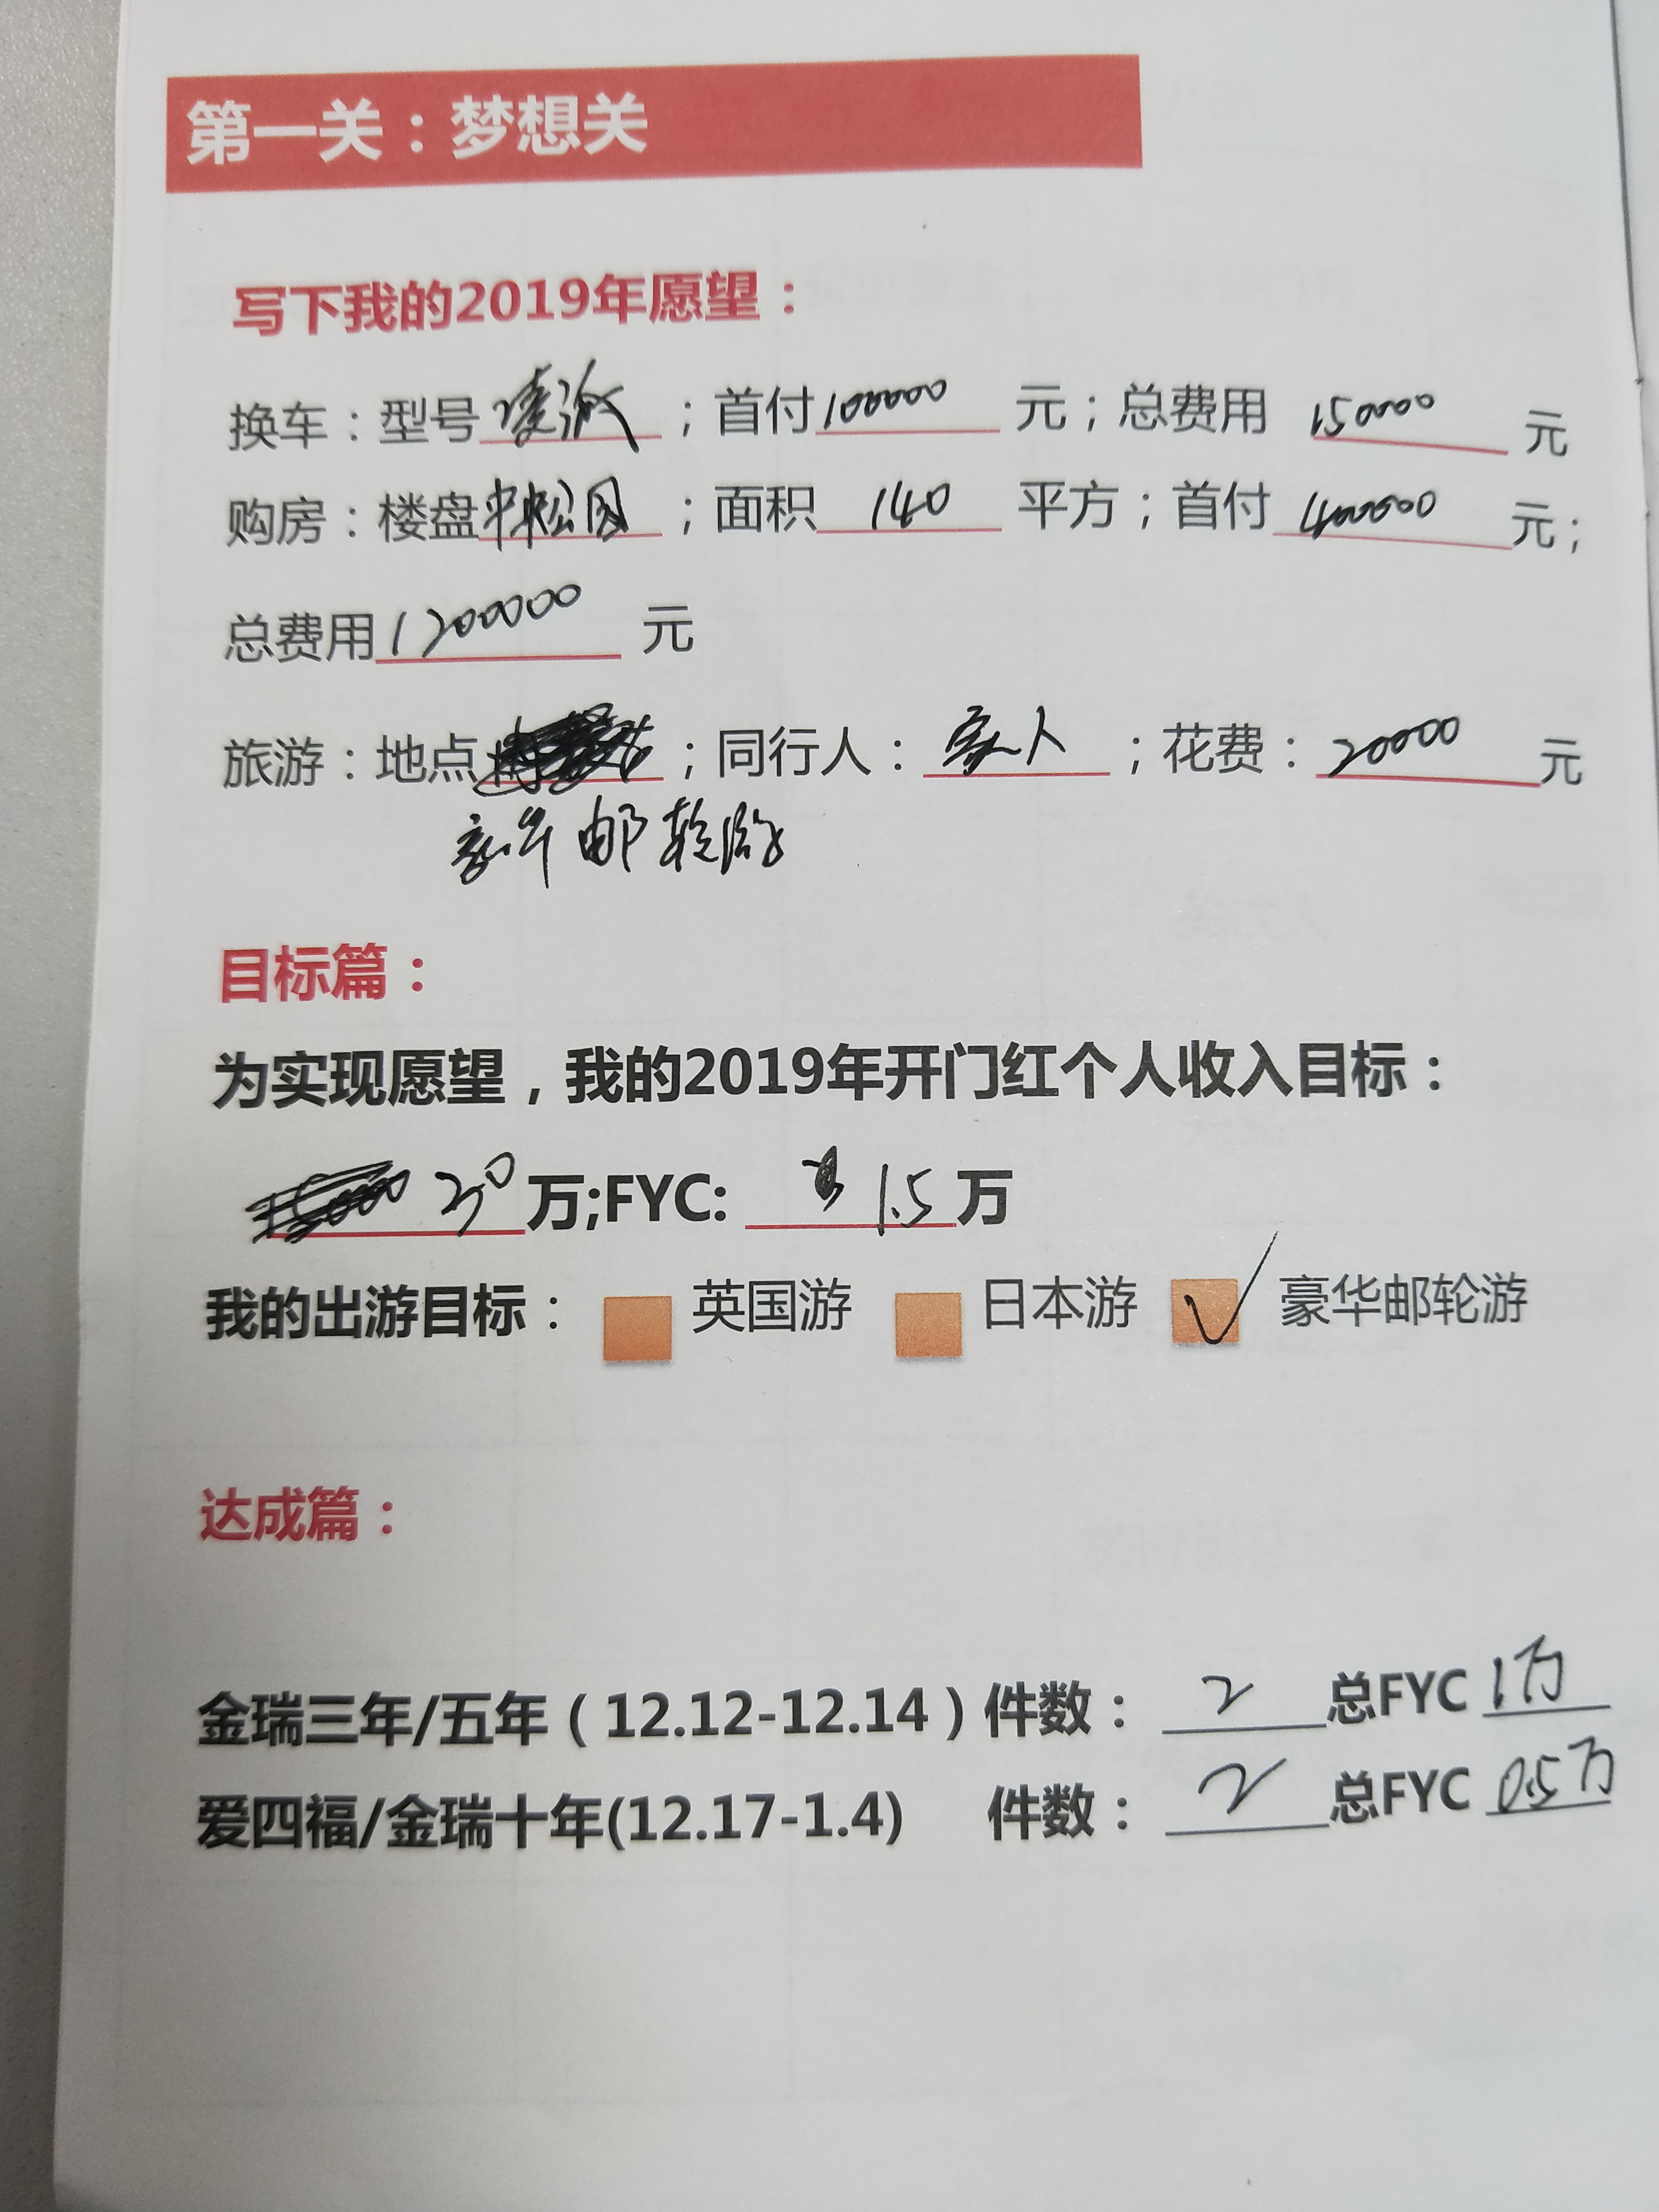 第一关：梦想关
写下我的2019年愿望：
换车：型号凌派；首付100000元；总费用150000元
购房：楼盘；面积140平方；首付400000元；
总费用1200000元
旅游：地点；同行人：家人；花费：20000元
邮轮
目标篇：
为实现愿望，我的2019年开门红个人收入目标：
30万;FYC:1.5万
我的出游目标： 英国游 日本游 ✓ 豪华邮轮游
达成篇：
金瑞三年/五年（12.12-12.14）件数：2总FYC 1万
爱四福/金瑞十年(12.17-1.4) 件数：2总FYC 0.5万